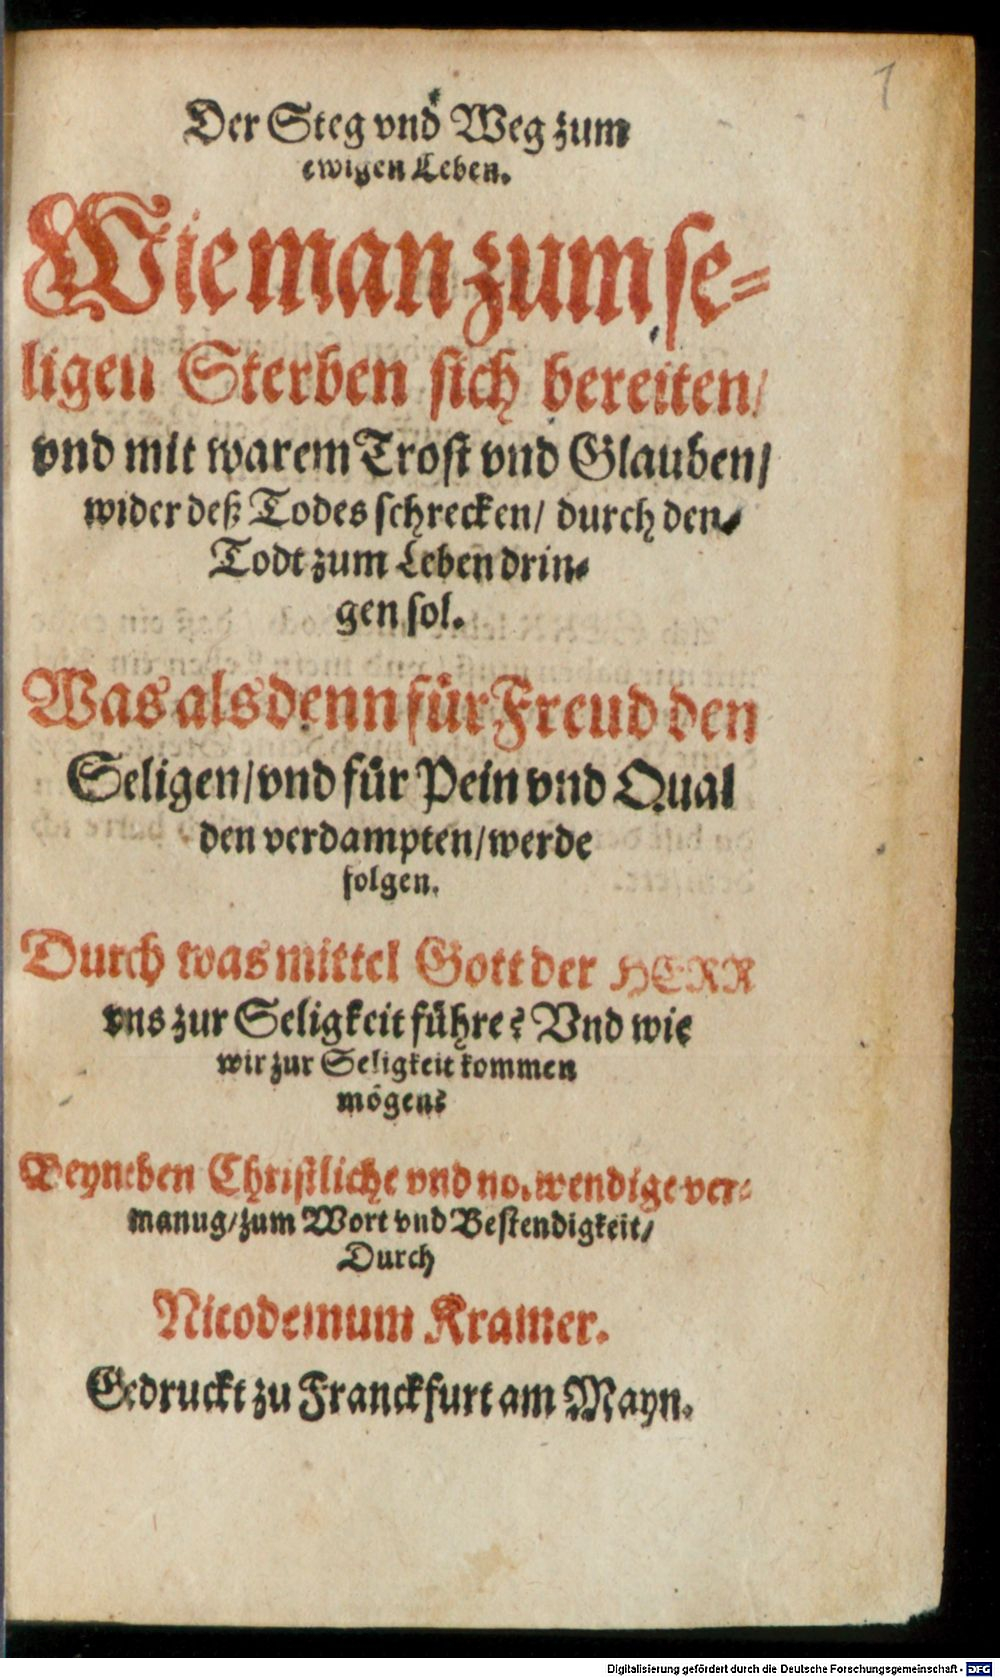 1
Der Steg vnd Weg zum
ewigen Leben.
Wie man zum se-
ligen Sterben sich bereiten/
vnd mit warem Trost vnd Glauben/
wider deß Todes schrecken/ durch den
Todt zum Leben drin-
gen sol.
Was als denn für Freud den
Seligen/ vnd für Pein vnd Qual
den verdampten/ werde
folgen.
Durch was mittel Gott der HERR
vns zur Seligkeit führe? Vnd wie
wir zur Seligkeit kommen
mögen?
Beyneben Christliche vnd notwendige ver-
manug/ zum Wort vnd Bestendigkeit/
Durch
Nicodemum Kramer.
Gedruckt zu Franckfurt am Mayn.
Digitalisierung gefördert durch die Deutsche Forschungsgemeinschaft - DFG